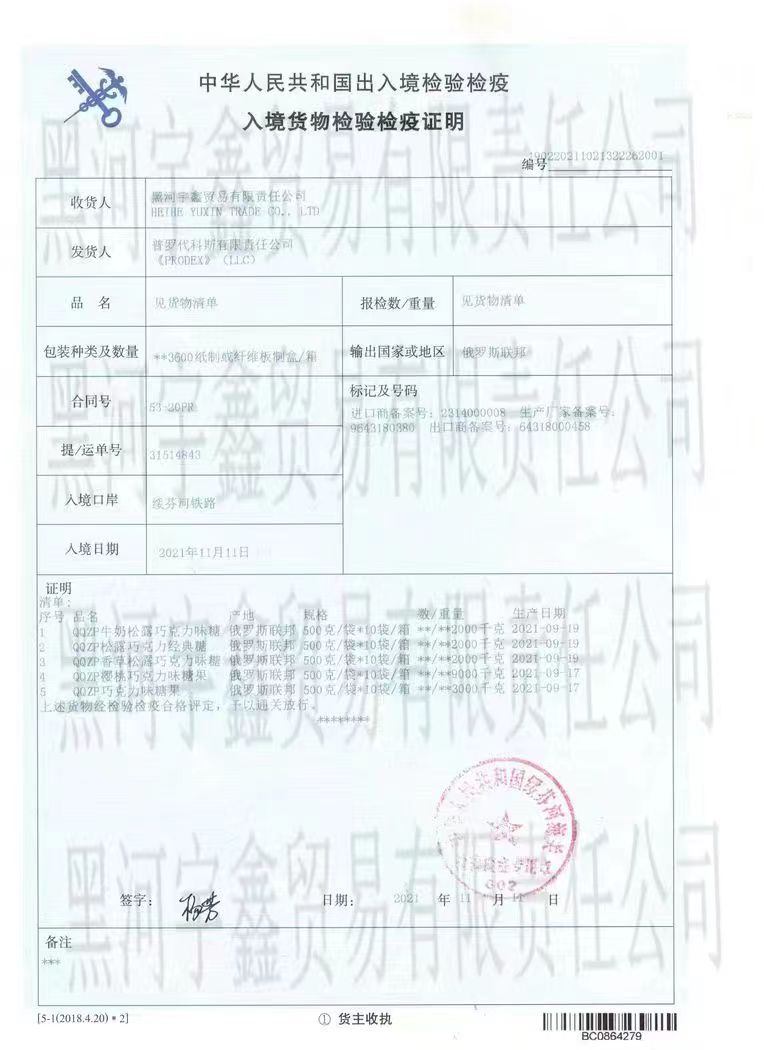 中华人民共和国出入境检验检疫
入境货物检验检疫证明
编号 190220211021322262001
收货人 黑河宇鑫贸易有限责任公司
HEIHE YUXIN TRADE CO., LTD
发货人 普罗代科斯有限责任公司
《PRODEX》（LLC）
品 名 见货物清单 报检数/重量 见货物清单
包装种类及数量 **3600纸制或纤维板制盒/箱 输出国家或地区 俄罗斯联邦
合同号 53-20PR
标记及号码
进口商备案号：2314000008 生产厂家备案号：
9643180380 出口商备案号：64318000458
提/运单号 31514843
入境口岸 绥芬河铁路
入境日期 2021年11月11日
证明
清单：
序号 品名 产地 规格 数/重量 生产日期
1 QQZP牛奶松露巧克力味糖 俄罗斯联邦 500克/袋*10袋/箱 **/**2000千克 2021-09-19
2 QQZP松露巧克力经典糖 俄罗斯联邦 500克/袋*10袋/箱 **/**2000千克 2021-09-19
3 QQZP香草松露巧克力味糖 俄罗斯联邦 500克/袋*10袋/箱 **/**2000千克 2021-09-19
4 QQZP樱桃巧克力味糖果 俄罗斯联邦 500克/袋*10袋/箱 **/**9000千克 2021-09-17
5 QQZP巧克力味糖果 俄罗斯联邦 500克/袋*10袋/箱 **/**3000千克 2021-09-17
上述货物经检验检疫合格评定，予以通关放行。
********
中华人民共和国绥芬河海关
002
签字： 日期： 2021 年 11 月 11 日
备注
***
[5-1(2018.4.20)*2] ① 货主收执
BC0864279
黑河宇鑫贸易有限责任公司
黑河宇鑫贸易有限责任公司
黑河宇鑫贸易有限责任公司
黑河宇鑫贸易有限责任公司